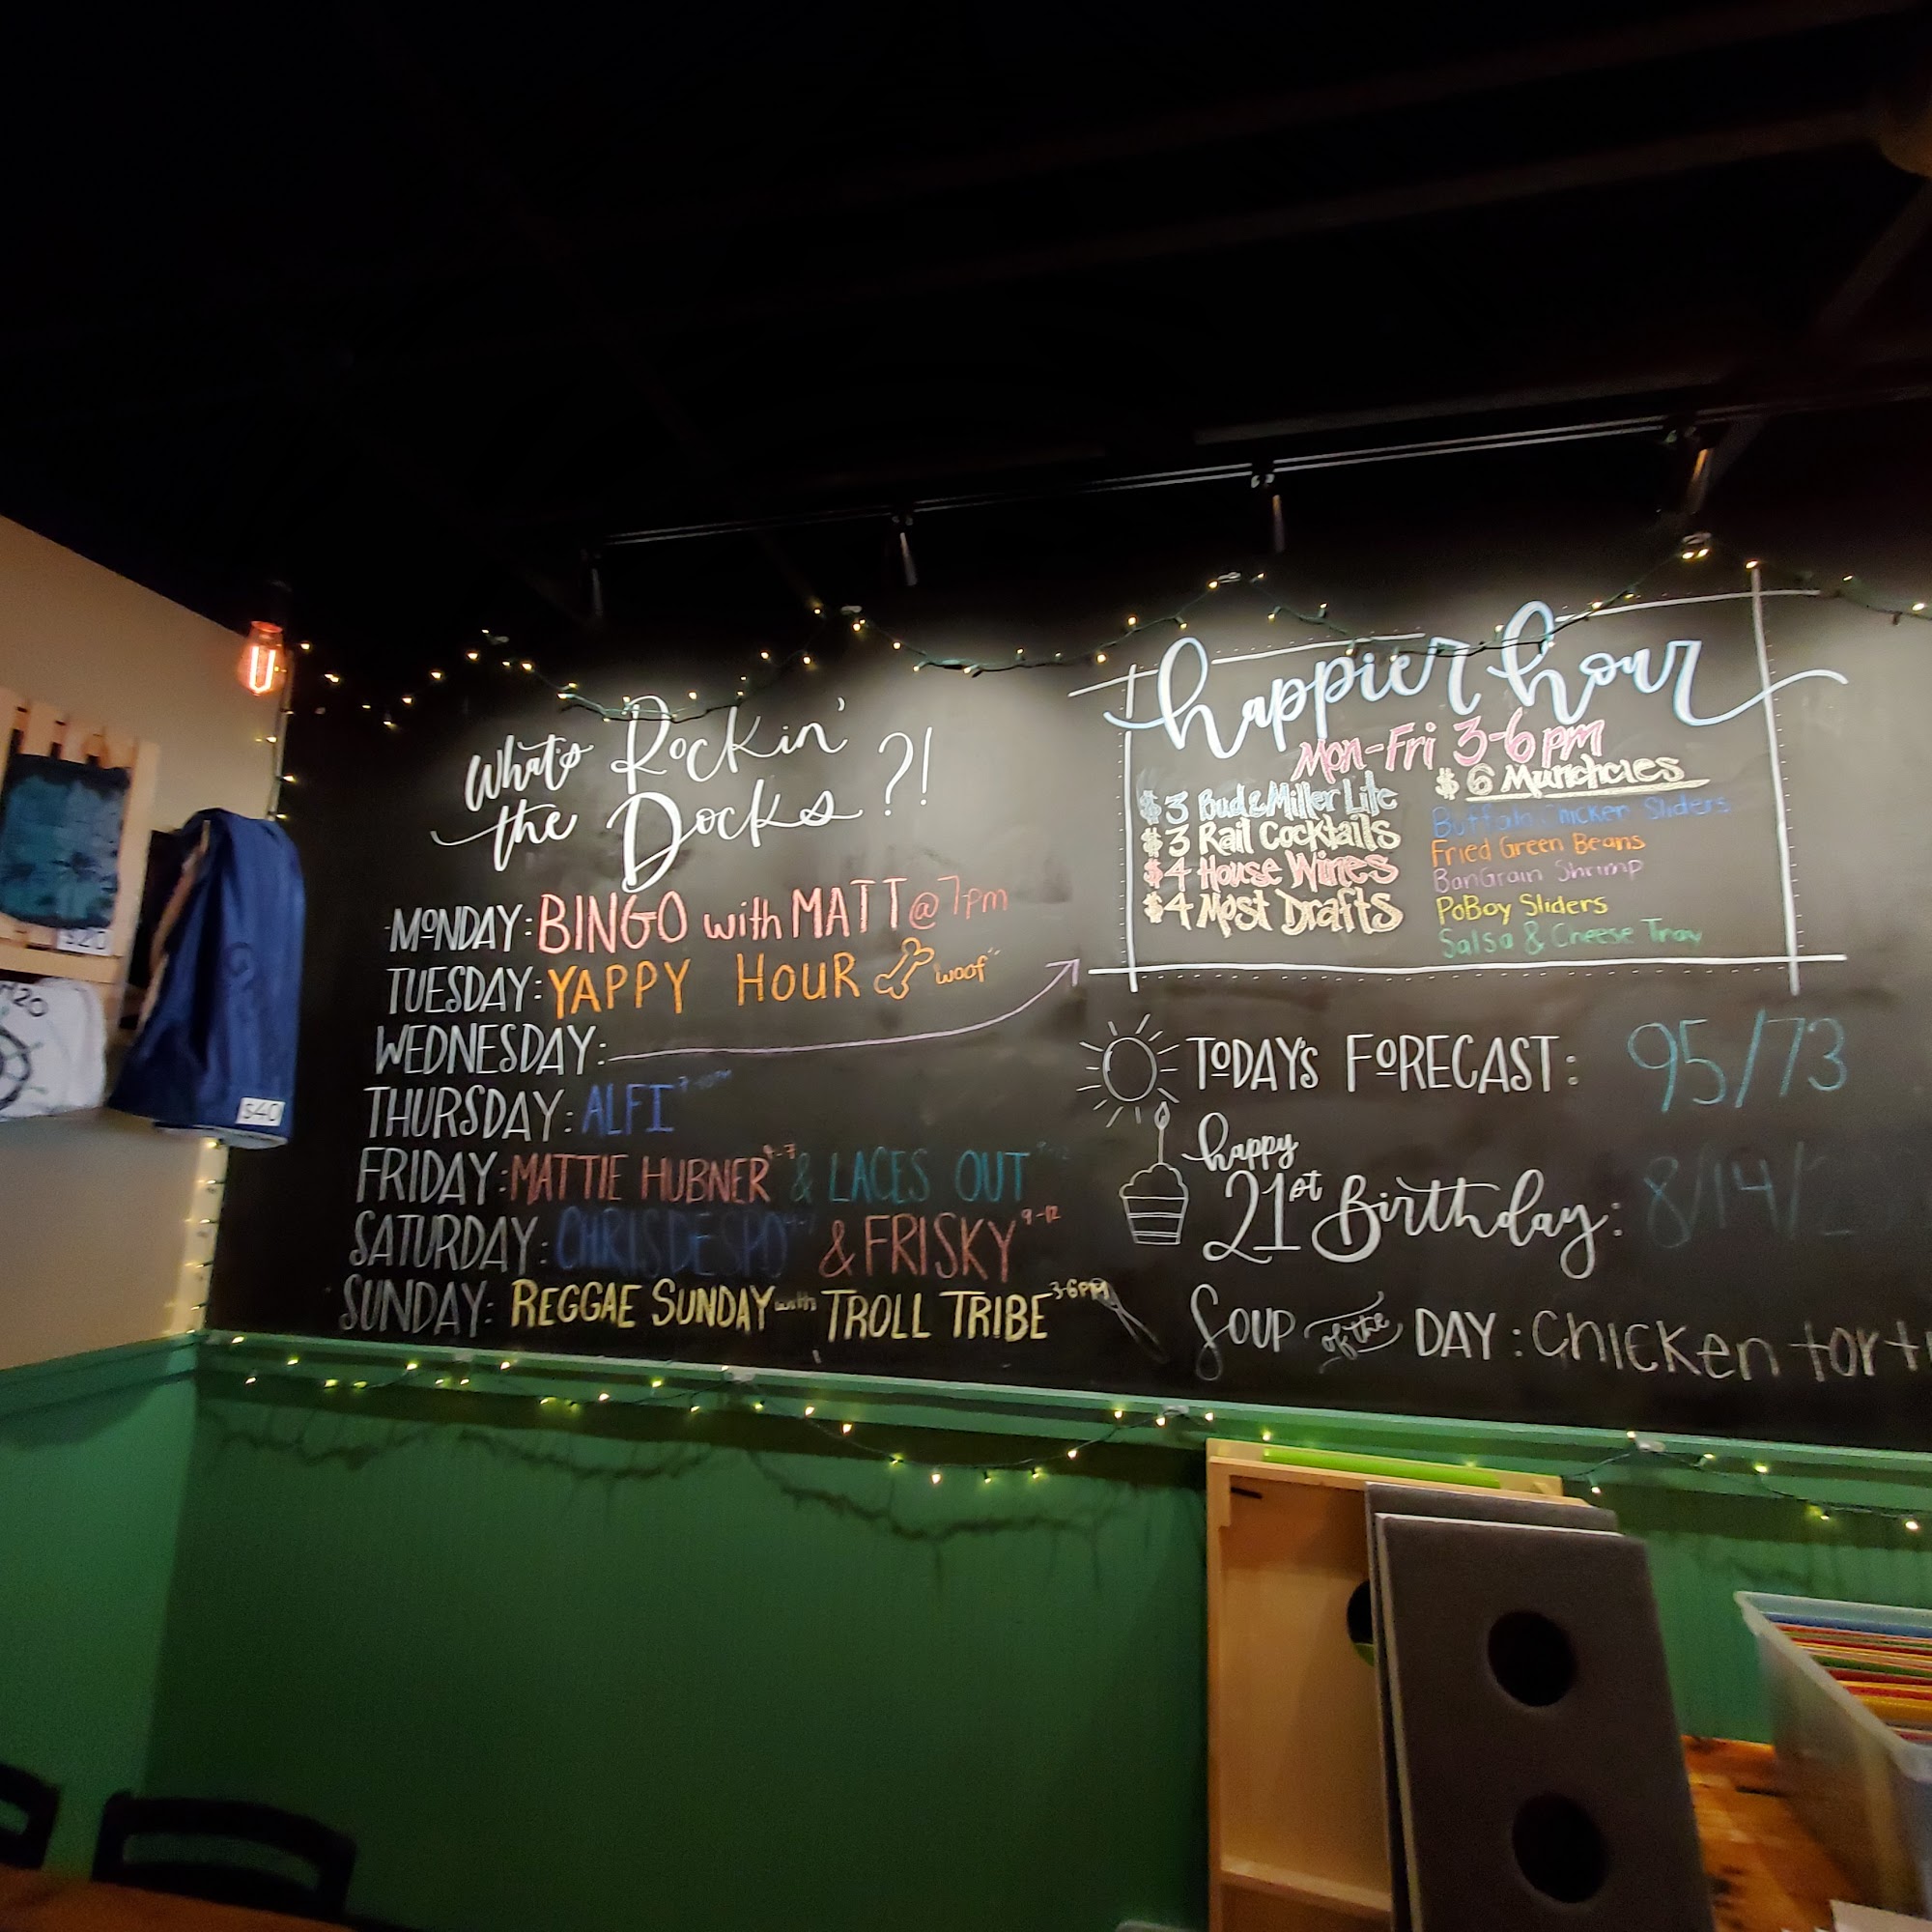 What's Rockin'
the Docks?!
MONDAY: BINGO with MATT @ 7pm
TUESDAY: YAPPY HOUR "woof"
WEDNESDAY:
THURSDAY: ALFI
FRIDAY: MATTIE HUBNER 4-7 & LACES OUT
SATURDAY: CHRIS DESPO 4-7 & FRISKY 9-12
SUNDAY: REGGAE SUNDAY with TROLL TRIBE 3-6PM
happier hour
Mon-Fri 3-6pm
$3 Bud & Miller Lite
$3 Rail Cocktails
$4 House Wines
$4 Most Drafts
$6 Munchcies
Buffalo Chicker Sliders
Fried Green Beans
BanGrain Shrimp
PoBoy Sliders
Salsa & Cheese Tray
TODAY'S FORECAST: 95/73
happy
21st Birthday: 8/14/
SOUP of the DAY: Chicken torti
$20
$40
H2O